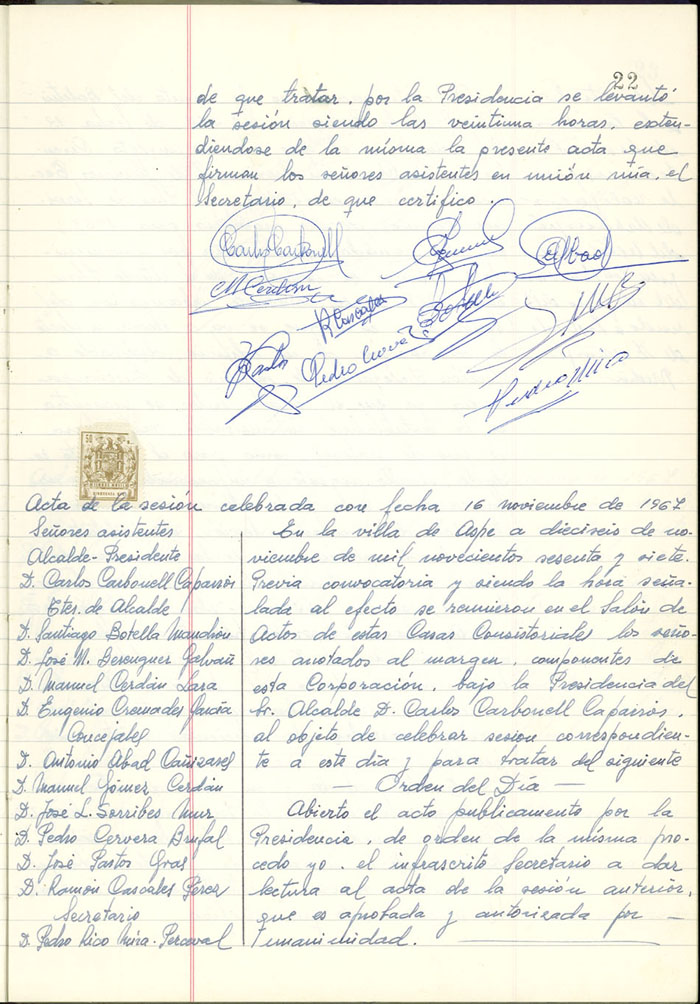 22
de que tratar, por la Presidencia se levantó
la sesión siendo las veintiuna horas, exten-
diendose de la misma la presente acta que
firman los señores asistentes en unión mia, el
Secretario, de que certifico.
Carlos Carbonell
Abad
M Cerdán
R Cascales
Botella
Pedro
Pastor
Pedro Rico
50
Acta de la sesión celebrada con fecha 16 noviembre de 1967
Señores asistentes
Alcalde-Presidente
D. Carlos Carbonell Caparrós
Ttes. de Alcalde
D. Santiago Botella Mandión
D. José M. Berenguer Galvañ
D. Manuel Cerdán Lara
D. Eugenio Cremades García
Concejales
D. Antonio Abad Cañizares
D. Manuel Gómez Cerdán
D. José L. Sorribes Mur
D. Pedro Cervera Brufal
D. José Pastor Gras
D. Ramon Cascales Pérez
Secretario
D. Pedro Rico Mira-Perceval
En la villa de Aspe a dieciseis de no-
viembre de mil novecientos sesenta y siete.
Previa convocatoria y siendo la hora seña-
lada al efecto se reunieron en el Salón de
Actos de estas Casas Consistoriales los seño-
res anotados al margen, componentes de
esta Corporación, bajo la Presidencia del
Sr. Alcalde D. Carlos Carbonell Caparrós,
al objeto de celebrar sesion correspondien-
te a este día y para tratar del siguiente
— Orden del Día —
Abierto el acto publicamente por la
Presidencia, de orden de la misma pro-
cedo yo, el infrascrito Secretario a dar
lectura al acta de la sesión anterior,
que es aprobada y autorizada por —
unanimidad. —